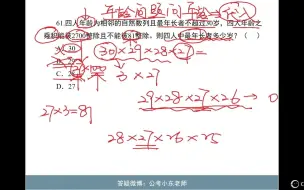 年龄问题问年龄=代入
61.四人年龄为相邻的自然数列且最年长者不超过30岁，四人年龄之
乘积能被2700整除且不能被81整除。则四人中最年长者多少岁？（ ）
A. 30
30×29×28×27
B. 29
C. 28
D. 27
3×27
29×28×27×26→0
27×3=81
28×27×26×25
答疑微博：公考小东老师